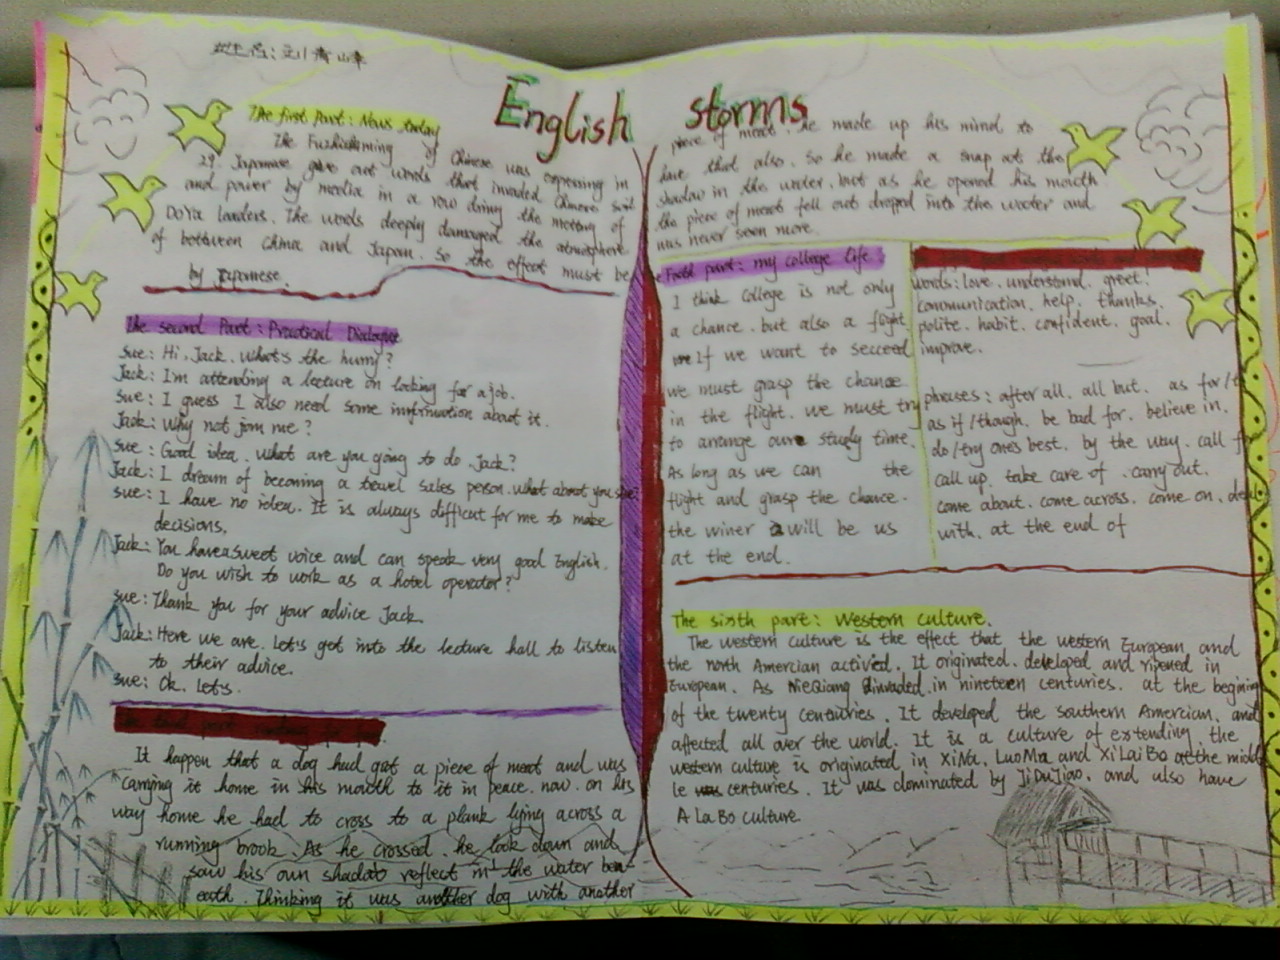 姓名:刘青峰
English storms
The first Part: News today
The Fuzhikeming of Chinese was expressing in
29. Japanese gave out words that invaded Chinese soil
and power by media in a row doing the meeting of
DoYa leaders. The words deeply damaged the atmosphere
of between China and Japan. So the effect must be
by Japanese.
The second Part: Practical Dialogue
Sue: Hi, Jack. What's the hurry?
Jack: I'm attending a lecture on looking for a job.
Sue: I guess I also need some imformation about it.
Jack: Why not jom me?
Sue: Good idea. What are you going to do. Jack?
Jack: I dream of becoming a travel sales person. what about you, sue?
Sue: I have no idea. It is always difficult for me to make
decisions.
Jack: You have a sweet voice and can speak very good English.
Do you wish to work as a hotel operator?
Sue: Thank you for your advice Jack.
Jack: Here we are. Let's get into the lecture hall to listen
to their advice.
Sue: Ok. Let's.
The third part
It happen that a dog had got a piece of meat and was
carrying it home in his mouth to it in peace. now. on his
way home he had to cross to a plank lying across a
running brook. As he crossed. he look down and
saw his own shadab reflect in the water ben-
eath. Thinking it was another dog with another
piece of meat. he made up his mind to
have that also. So he made a snap at the
shadow in the water. but as he opened his mouth
the piece of meat fell out dropped into the water and
was never seen more.
Foth part: my college life
I think College is not only
a chance. but also a flight.
If we want to secceed
we must grasp the chance
in the flight. we must try
to arrange our study time.
As long as we can the
flight and grasp the chance.
the winer will be us
at the end.
words: love. understand. greet!
communication. help. thanks.
polite. habit. confident. goal.
improve.
phrases: after all. all but. as for/t
as if/though. be bad for. believe in.
do/try one's best. by the way. call f
call up. take care of. carry out.
come about. come across. come on. deal
with. at the end of
The sixth part: Western culture.
The western culture is the effect that the western European and
the north Amercian actived. It originated. developed and ripened in
European. As NieQiang invaded in nineteen centuries. at the begining
of the twenty centuries. It developed the southern Amercian. and
affected all over the world. It is a culture of extending the
western culture is originated in XiNa. LuoMa and XiLaiBo at the midd
le centuries. It was dominated by JiDuJiao. and also have
A LaBo culture.